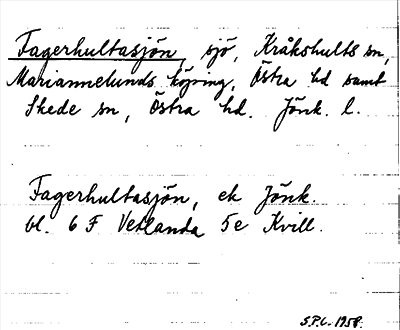 Fagerhultasjön, sjö, Kråkshults sn,
Mariannelunds köping, Östra hd samt
Skede sn, Östra hd. Jönk. l.
Fagerhultasjön, ek Jönk.
bl. 6 F Vetlanda 5e Kvill.
S.P.L. 1958.